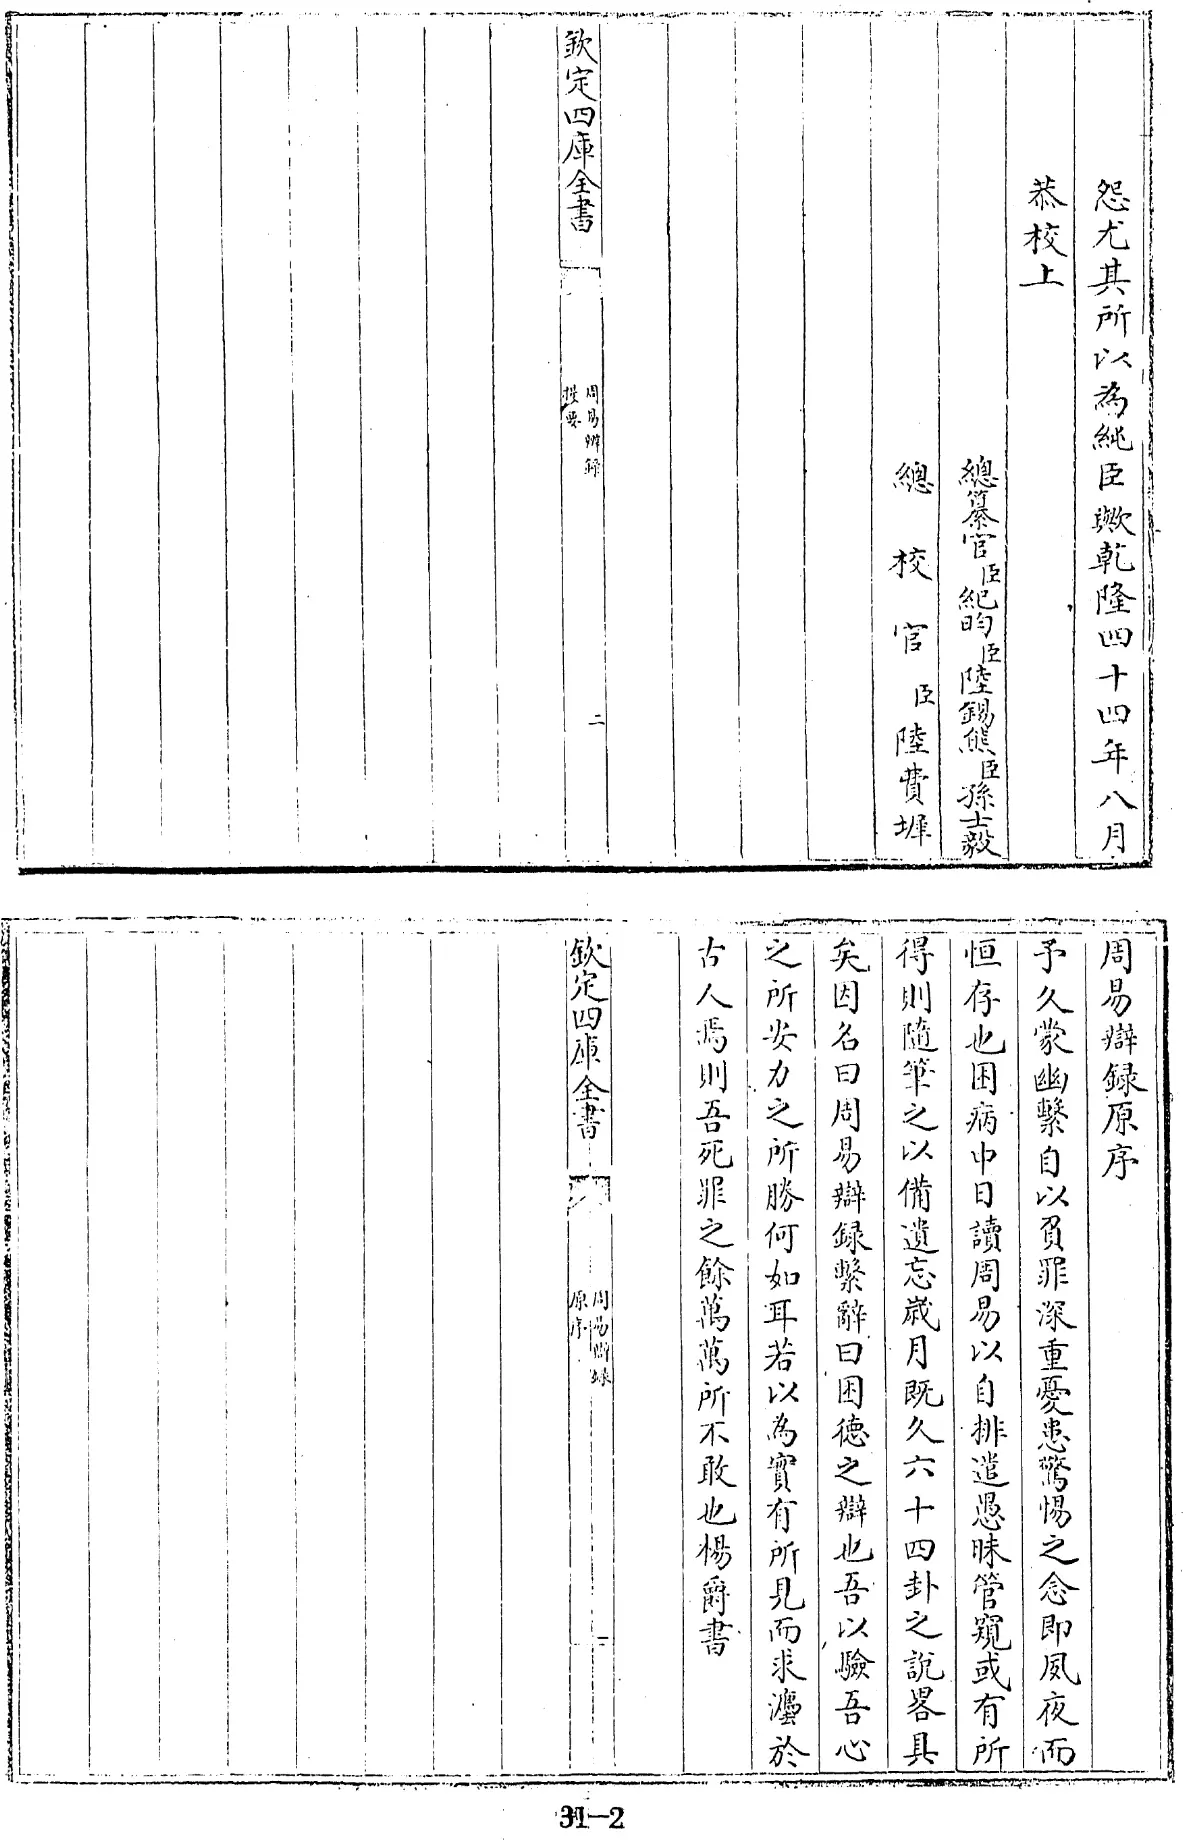 怨尤其所以為純臣歟乾隆四十四年八月
恭校上
總纂官臣紀昀臣陸錫熊臣孫士毅
總校官臣陸費墀
欽定四庫全書
周易辨録
提要
二
周易辯録原序
予久蒙幽繫自以負罪深重憂患驚惕之念即夙夜而
恒存也困病中日讀周易以自排遣愚昧管窺或有所
得則隨筆之以備遺忘歲月既久六十四卦之說畧具
矣因名曰周易辯録繫辭曰困德之辯也吾以驗吾心
之所安力之所勝何如耳若以為實有所見而求瀍於
古人焉則吾死罪之餘萬萬所不敢也楊爵書
欽定四庫全書
周易辯録
原序
一
31-2